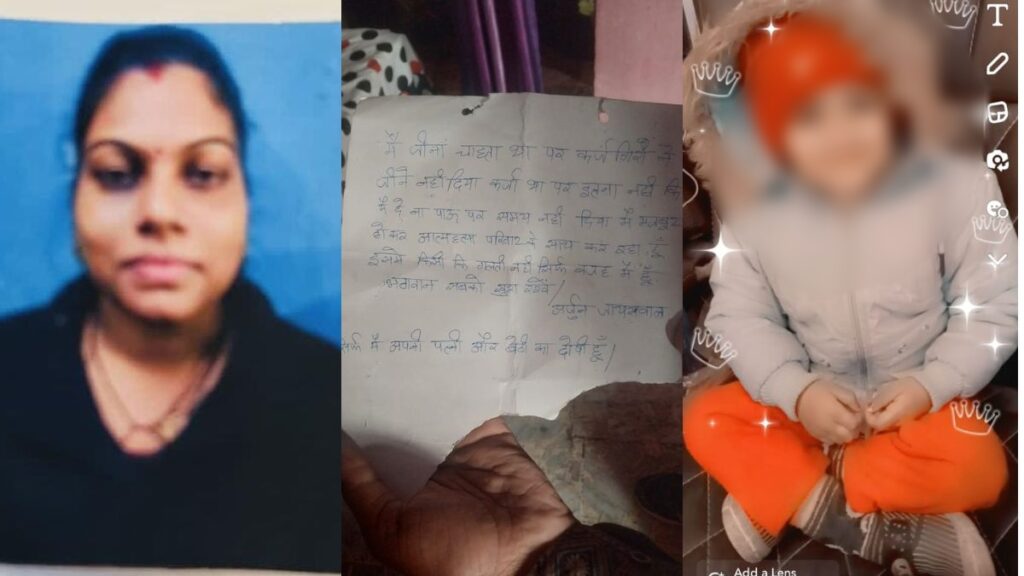 मैं जीना चाहता था पर कर्ज गिरी ने
जीने नही दिया कर्जा था पर इतना नही कि
मैं दे ना पाऊ पर समय नही दिया मैं मजबूर
होकर आत्महत्या परिवार के साथ कर रहा हूँ
इसमे किसी कि गलती नही सिर्फ वजह मैं हूँ
भगवान सबको खुश रखें।
अर्जुन जायसवाल
सिर्फ मैं अपनी पत्नी और बेटी का दोषी हूँ।
T
Add a Lens